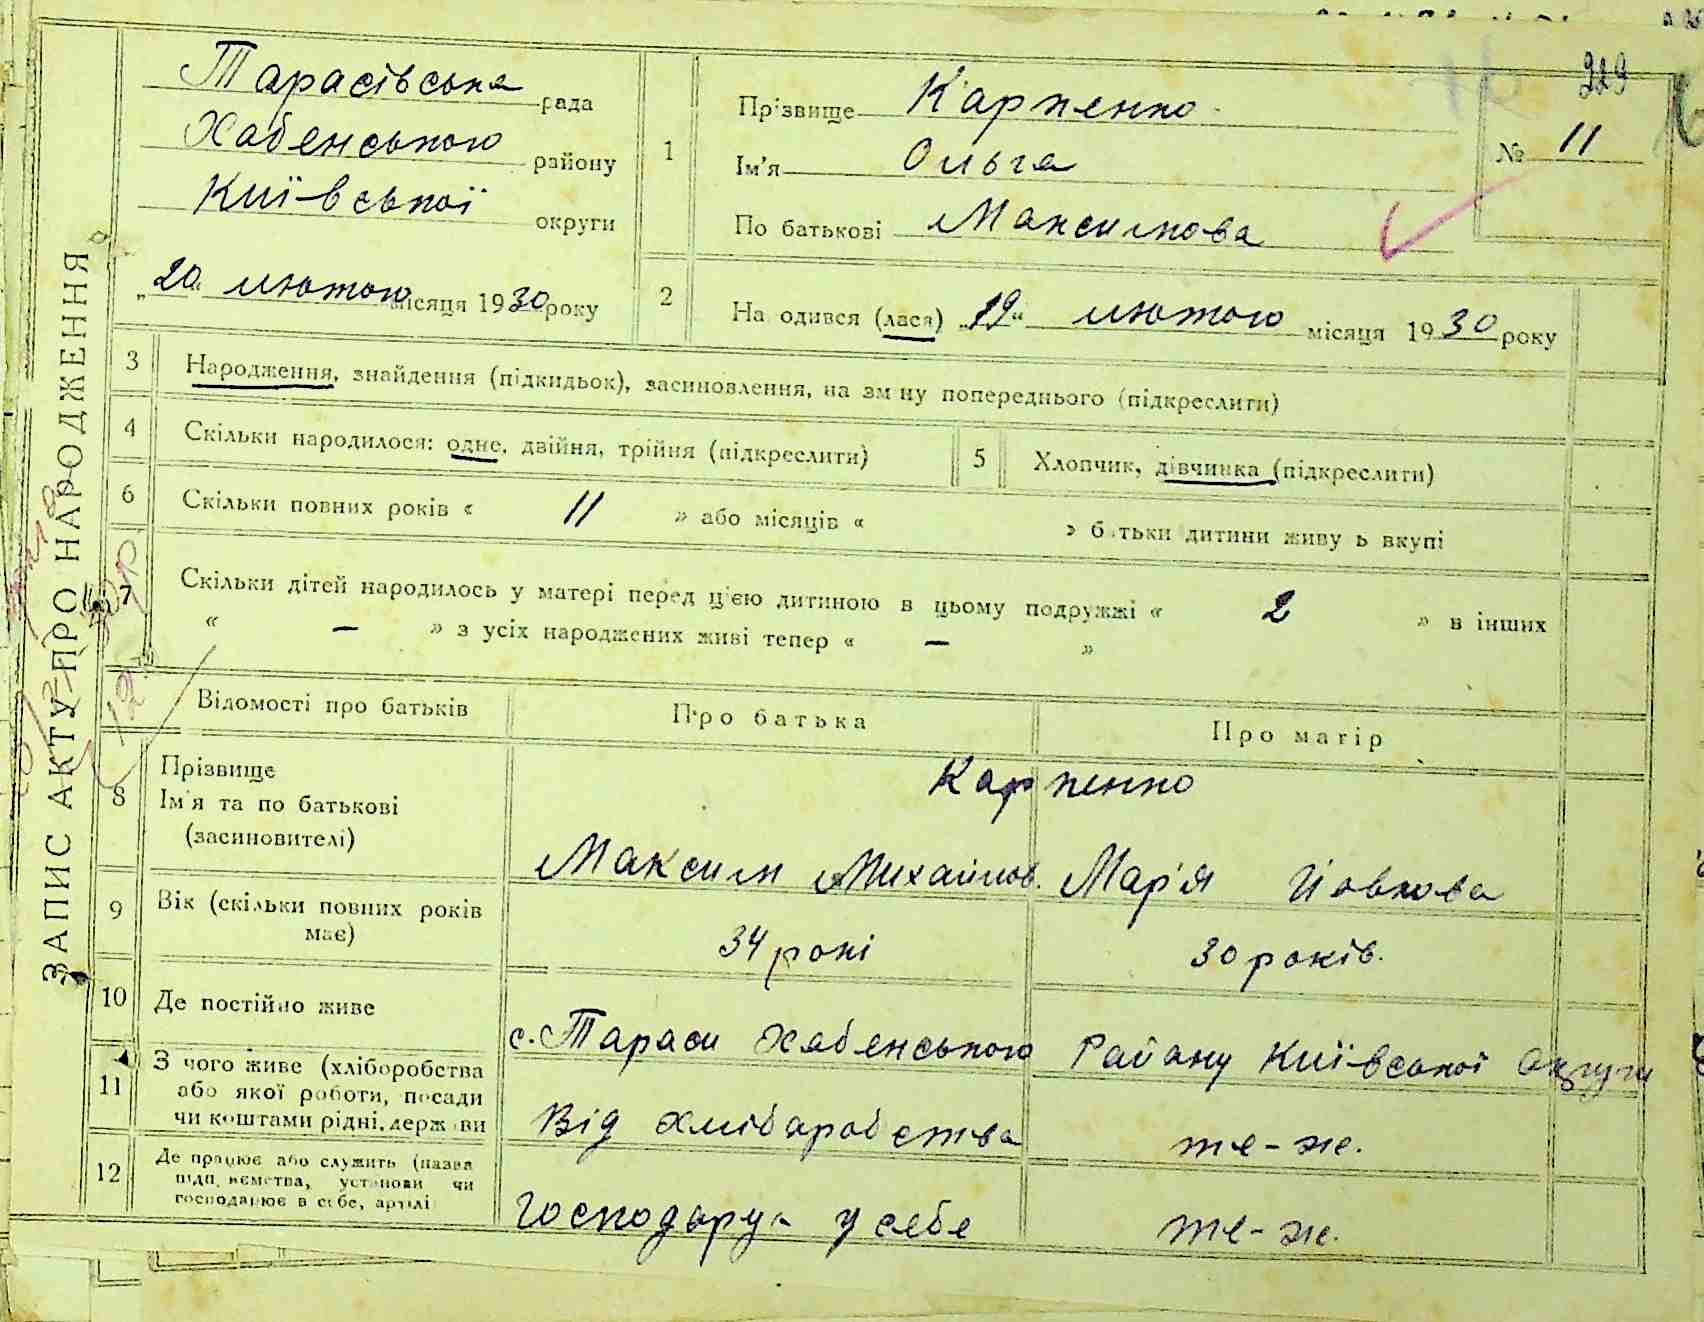 229
Тарасівська рада
Хабенського району
Київської округи
„20“ лютого місяця 1930 року
1
Прізвище Карпенко
Ім'я Ольга
По батькові Максимова
№ 11
2
На одився (лася) „19“ лютого місяця 1930 року
ЗАПИС АКТУ ПРО НАРОДЖЕННЯ
3 Народження, знайдення (підкидьок), засиновлення, на зм ну попереднього (підкреслити)
4 Скільки народилося: одне, двійня, трійня (підкреслити)
5 Хлопчик, дівчинка (підкреслити)
6 Скільки повних років « 11 » або місяців « » б тьки дитини живу ь вкупі
7 Скільки дітей народилось у матері перед цією дитиною в цьому подружжі « 2 » в інших
« — » з усіх народжених живі тепер « — »
Відомості про батьків
Про батька
Про матір
8
Прізвище
Ім'я та по батькові
(засиновителі)
Карпенко
Максим Михайлов. Мар'я Йовкова
9
Вік (скільки повних років
має)
34 рокі
30 років.
10 Де постійно живе
с. Тараси Хабенського Району Київської Округи
11
З чого живе (хліборобства
або якої роботи, посади
чи коштами рідні, держ ви
Від хліборобства
те-ж.
12
Де працює або служить (назва
підп иємства, установи чи
господарює в себе, артілі
Господарує у себе
те-ж.